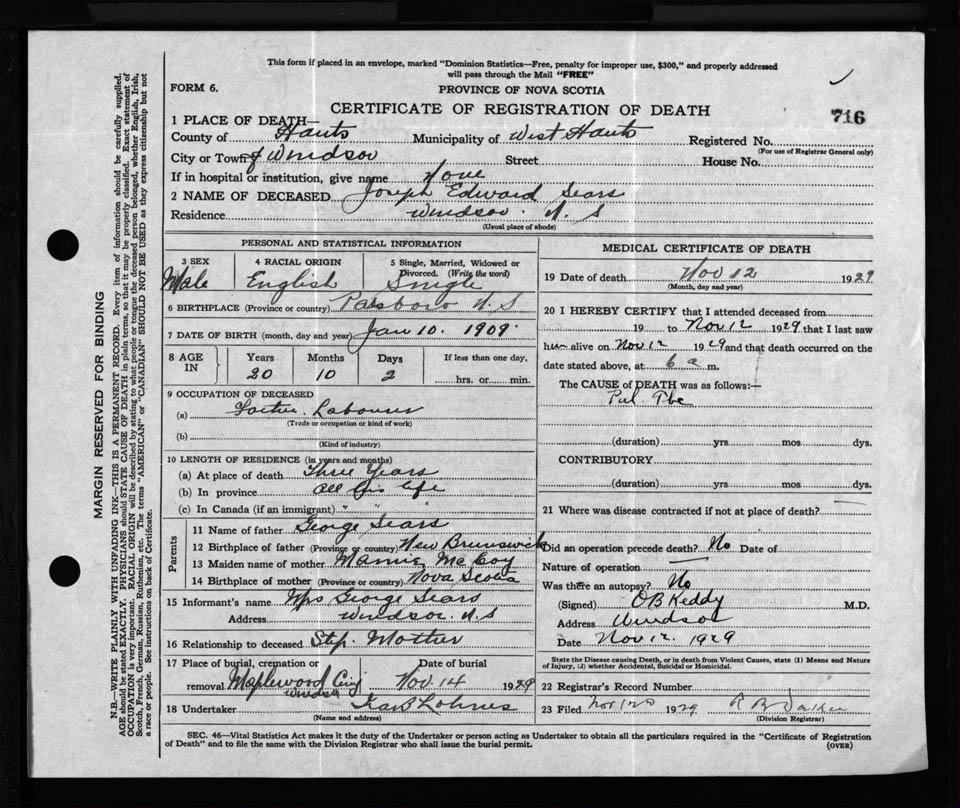 This form if placed in an envelope, marked "Dominion Statistics—Free, penalty for improper use, $300," and properly addressed
will pass through the Mail "FREE"
FORM 6.
PROVINCE OF NOVA SCOTIA
CERTIFICATE OF REGISTRATION OF DEATH
716
1 PLACE OF DEATH—
County of Hants Municipality of West Hants Registered No.
(For use of Registrar General only)
City or Town of Windsor Street House No.
If in hospital or institution, give name None
2 NAME OF DECEASED Joseph Edward Sears
Residence Windsor. N. S
(Usual place of abode)
PERSONAL AND STATISTICAL INFORMATION
3 SEX 4 RACIAL ORIGIN 5 Single, Married, Widowed or
Divorced. (Write the word)
Male English Single
6 BIRTHPLACE (Province or country) Parsboro N.S
7 DATE OF BIRTH (month, day and year) Jan 10. 1909.
8 AGE IN Years Months Days If less than one day,
20 10 2 hrs. or min.
9 OCCUPATION OF DECEASED
(a) Labourer
(Trade or occupation or kind of work)
(b)
(Kind of industry)
10 LENGTH OF RESIDENCE (in years and months)
(a) At place of death Three Years
(b) In province all his life
(c) In Canada (if an immigrant) " "
Parents
11 Name of father George Sears
12 Birthplace of father (Province or country) New Brunswick
13 Maiden name of mother Mamie McCoy
14 Birthplace of mother (Province or country) Nova Scotia
15 Informant's name Mrs George Sears
Address Windsor. N.S
16 Relationship to deceased Step. Mother
17 Place of burial, cremation or Date of burial
removal Maplewood Windsor Nov. 14 1929
18 Undertaker Lohnes
(Name and address)
MEDICAL CERTIFICATE OF DEATH
19 Date of death Nov 12 1929
(Month, day and year)
20 I HEREBY CERTIFY that I attended deceased from
19 to Nov 12 1929 that I last saw
him alive on Nov 12 1929 and that death occurred on the
date stated above, at 6 a m.
The CAUSE of DEATH was as follows:—
Pul Tbc
(duration) yrs mos dys.
CONTRIBUTORY
(duration) yrs mos dys.
21 Where was disease contracted if not at place of death?
Did an operation precede death? No Date of
Nature of operation —
Was there an autopsy? No
(Signed) O B Keddy M.D.
Address Windsor
Date Nov 12. 1929
State the Disease causing Death, or in death from Violent Causes, state (1) Means and Nature
of Injury, (2) whether Accidental, Suicidal or Homicidal.
22 Registrar's Record Number
23 Filed 1929
(Division Registrar)
SEC. 46—Vital Statistics Act makes it the duty of the Undertaker or person acting as Undertaker to obtain all the particulars required in the "Certificate of Registration
of Death" and to file the same with the Division Registrar who shall issue the burial permit.
(OVER)
MARGIN RESERVED FOR BINDING
N.B.—WRITE PLAINLY WITH UNFADING INK—THIS IS A PERMANENT RECORD. Every item of information should be carefully supplied.
AGE should be stated EXACTLY. PHYSICIANS should STATE CAUSE OF DEATH in plain terms, so that it may be properly classified. Exact statement of
OCCUPATION is very important. RACIAL ORIGIN will be described by stating to what people or tongue the deceased person belonged, whether English, Irish,
Scotch, French, German, Russian, Ruthenian, etc. The terms "AMERICAN" or "CANADIAN" SHOULD NOT BE USED as they express citizenship but not
a race or people. See instructions on back of Certificate.